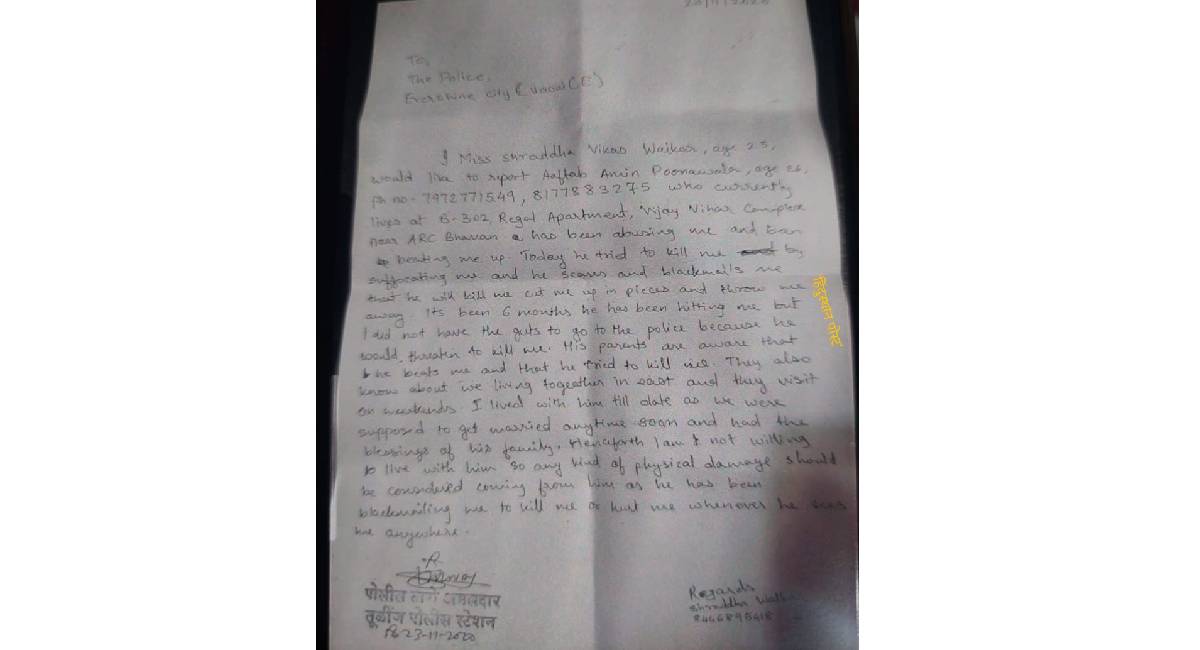 23/11/2020
To,
The Police,
Evershine City (Vasai (E))
I Miss Shraddha Vikas Walkar, age 25,
would like to report Aaftab Amin Poonawala, age 26,
ph no- 7972771549, 8177883275 who currently
lives at B-302, Regal Apartment, Vijay Vihar Complex
near ARC Bhavan has been abusing me and
beating me up. Today he tried to kill me by
suffocating me and he scares and blackmails me
that he will kill me cut me up in pieces and throw me
away. Its been 6 months he has been hitting me but
I did not have the guts to go to the police because he
would threaten to kill me. His parents are aware that
he beats me and that he tried to kill me. They also
know about we living togeather in and they visit
on weekends. I lived with him till date as we were
supposed to get married anytime soon and had the
blessings of his family. Henceforth I am not willing
to live with him so any kind of physical damage should
be considered coming from him as he has been
blackmailing me to kill me or hurt me whenever he sees
me anywhere.
पोलीस ठाणे अंमलदार
तूळींज पोलीस स्टेशन
23-11-2020
Regards
Shraddha Walkar
8446895418
हिंदुस्थान पोस्ट